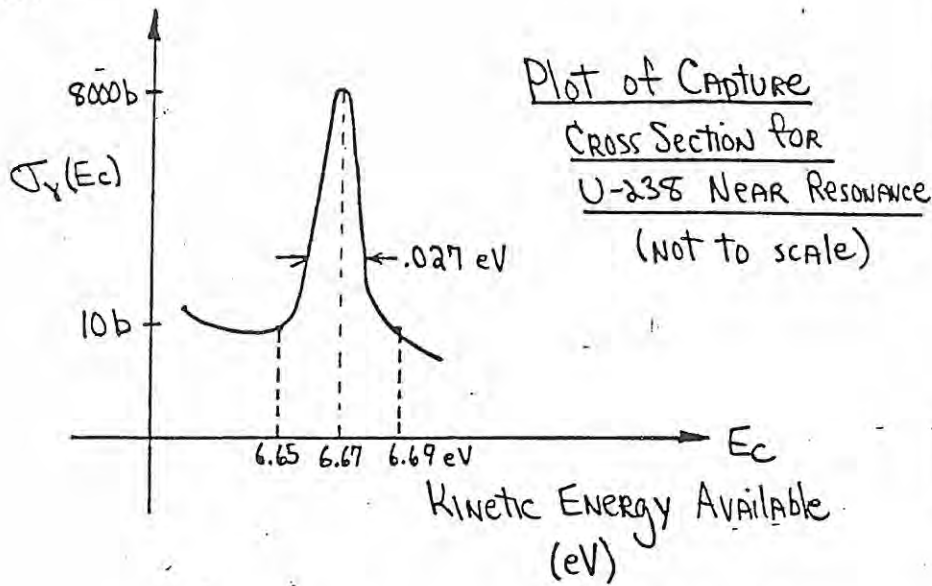 8000b
σγ(Ec)
10b
.027 eV
Plot of CAPTURE
CROSS SECTION FOR
U-238 NEAR RESONANCE
(NOT TO SCALE)
6.65 6.67 6.69 eV
Ec
KINETIC ENERGY AVAILABLE
(eV)